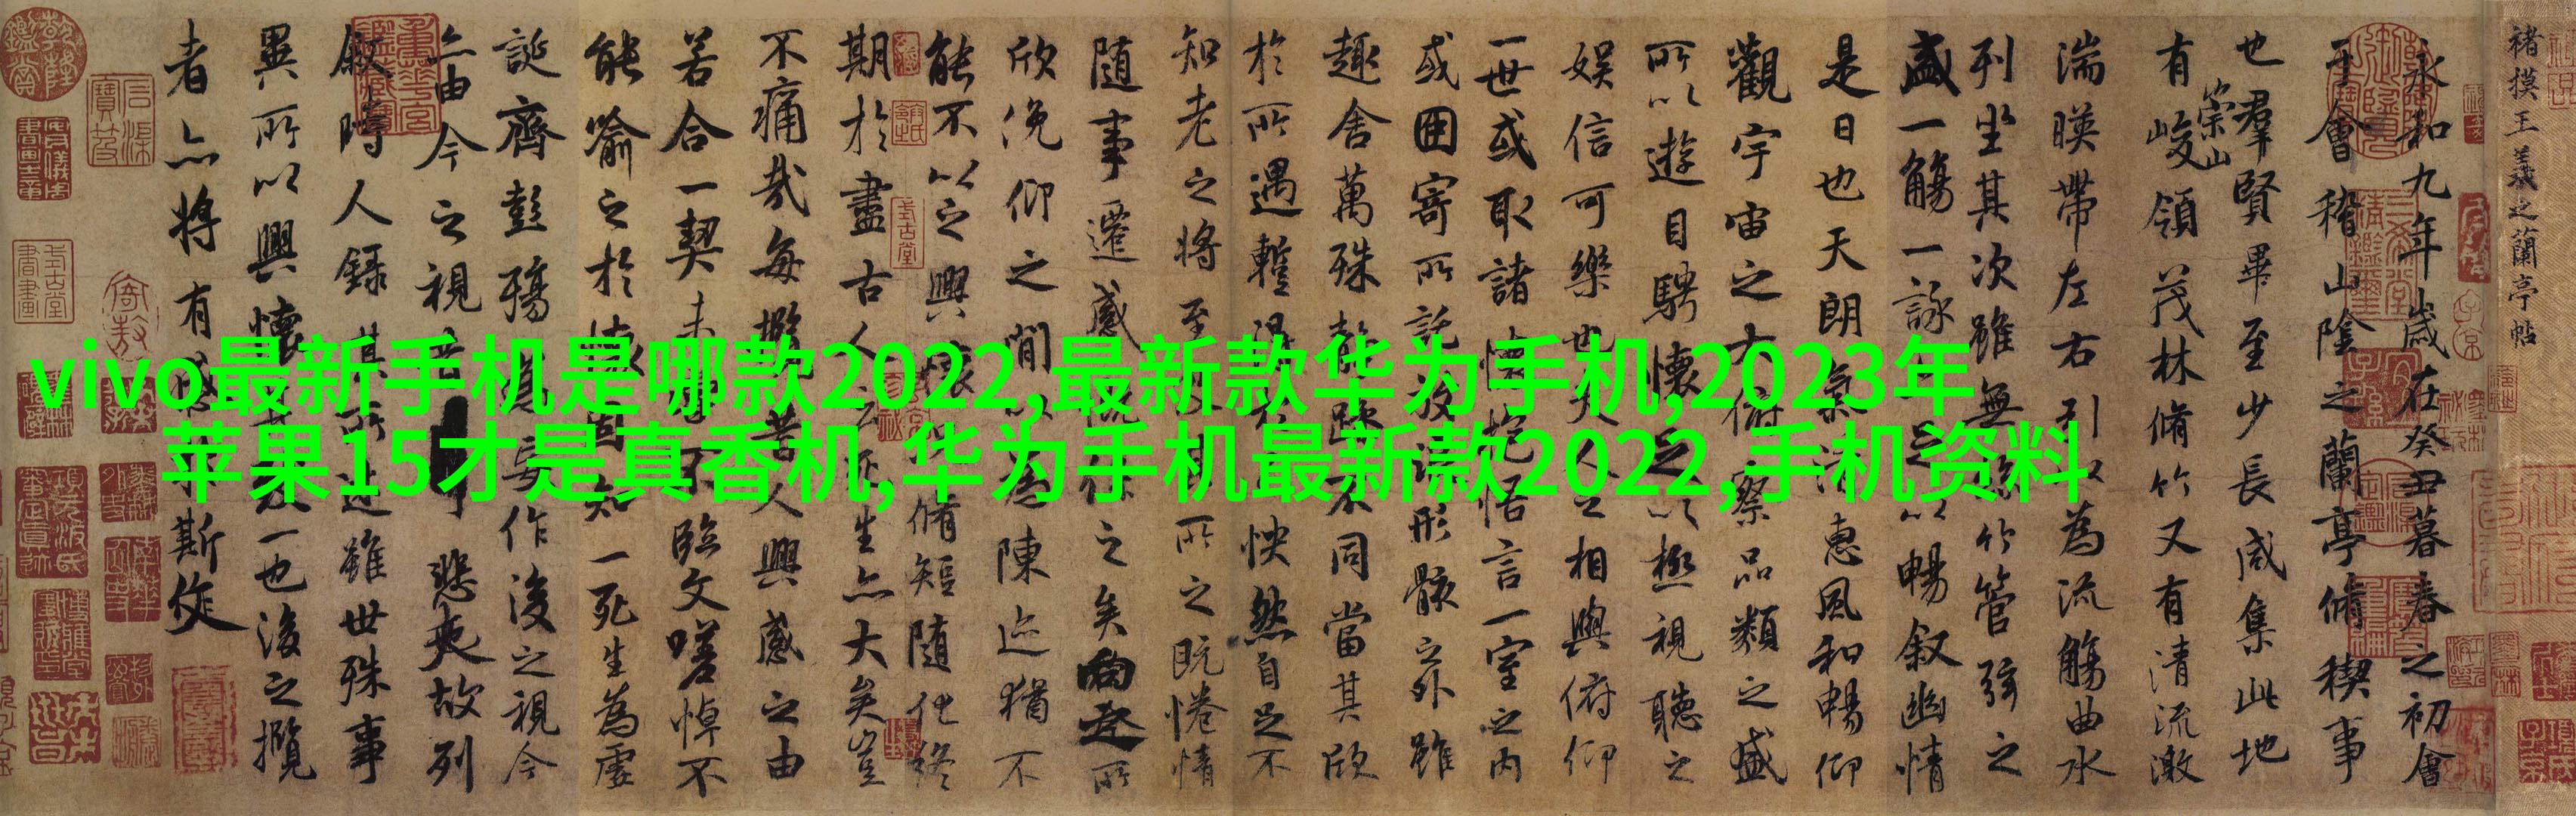 褚摸王羲之蘭亭帖
永和九年歳在癸丑暮春之初會
于會稽山陰之蘭亭脩稧事
也羣賢畢至少長咸集此地
有崇山峻領茂林脩竹又有清流激
湍暎帶左右引以為流觴曲水
列坐其次雖無絲竹管弦之
盛一觴一詠足以暢叙幽情
是日也天朗氣清惠風和暢仰
觀宇宙之大俯察品類之盛
所以遊目騁懷足以極視聽之
娱信可樂也夫人之相與俯仰
一世或取諸懷抱悟言一室之内
或因寄所託放浪形骸之外雖
趣舍萬殊静躁不同當其欣
於所遇暫得怏然自足不
知老之將至所之既惓情
随事遷感慨係之矣向之所
欣俛仰之間以為陳迹猶不
能不以之興懷脩短随化終
期於盡古人云死生亦大矣豈
不痛哉每攬昔人興感之由
若合一契未嘗不臨文嗟悼不
能喻之於懷固知一死生為虚
誕齊彭殤為妄作後之視今
亦由今之視昔悲夫故列
叙時人録其所述雖世殊事
異所以興懷其致一也後之攬
者亦將有感於斯文
vivo最新手机是哪款2022,最新款华为手机,2023年
苹果15才是真香机,华为手机最新款2022,手机资料